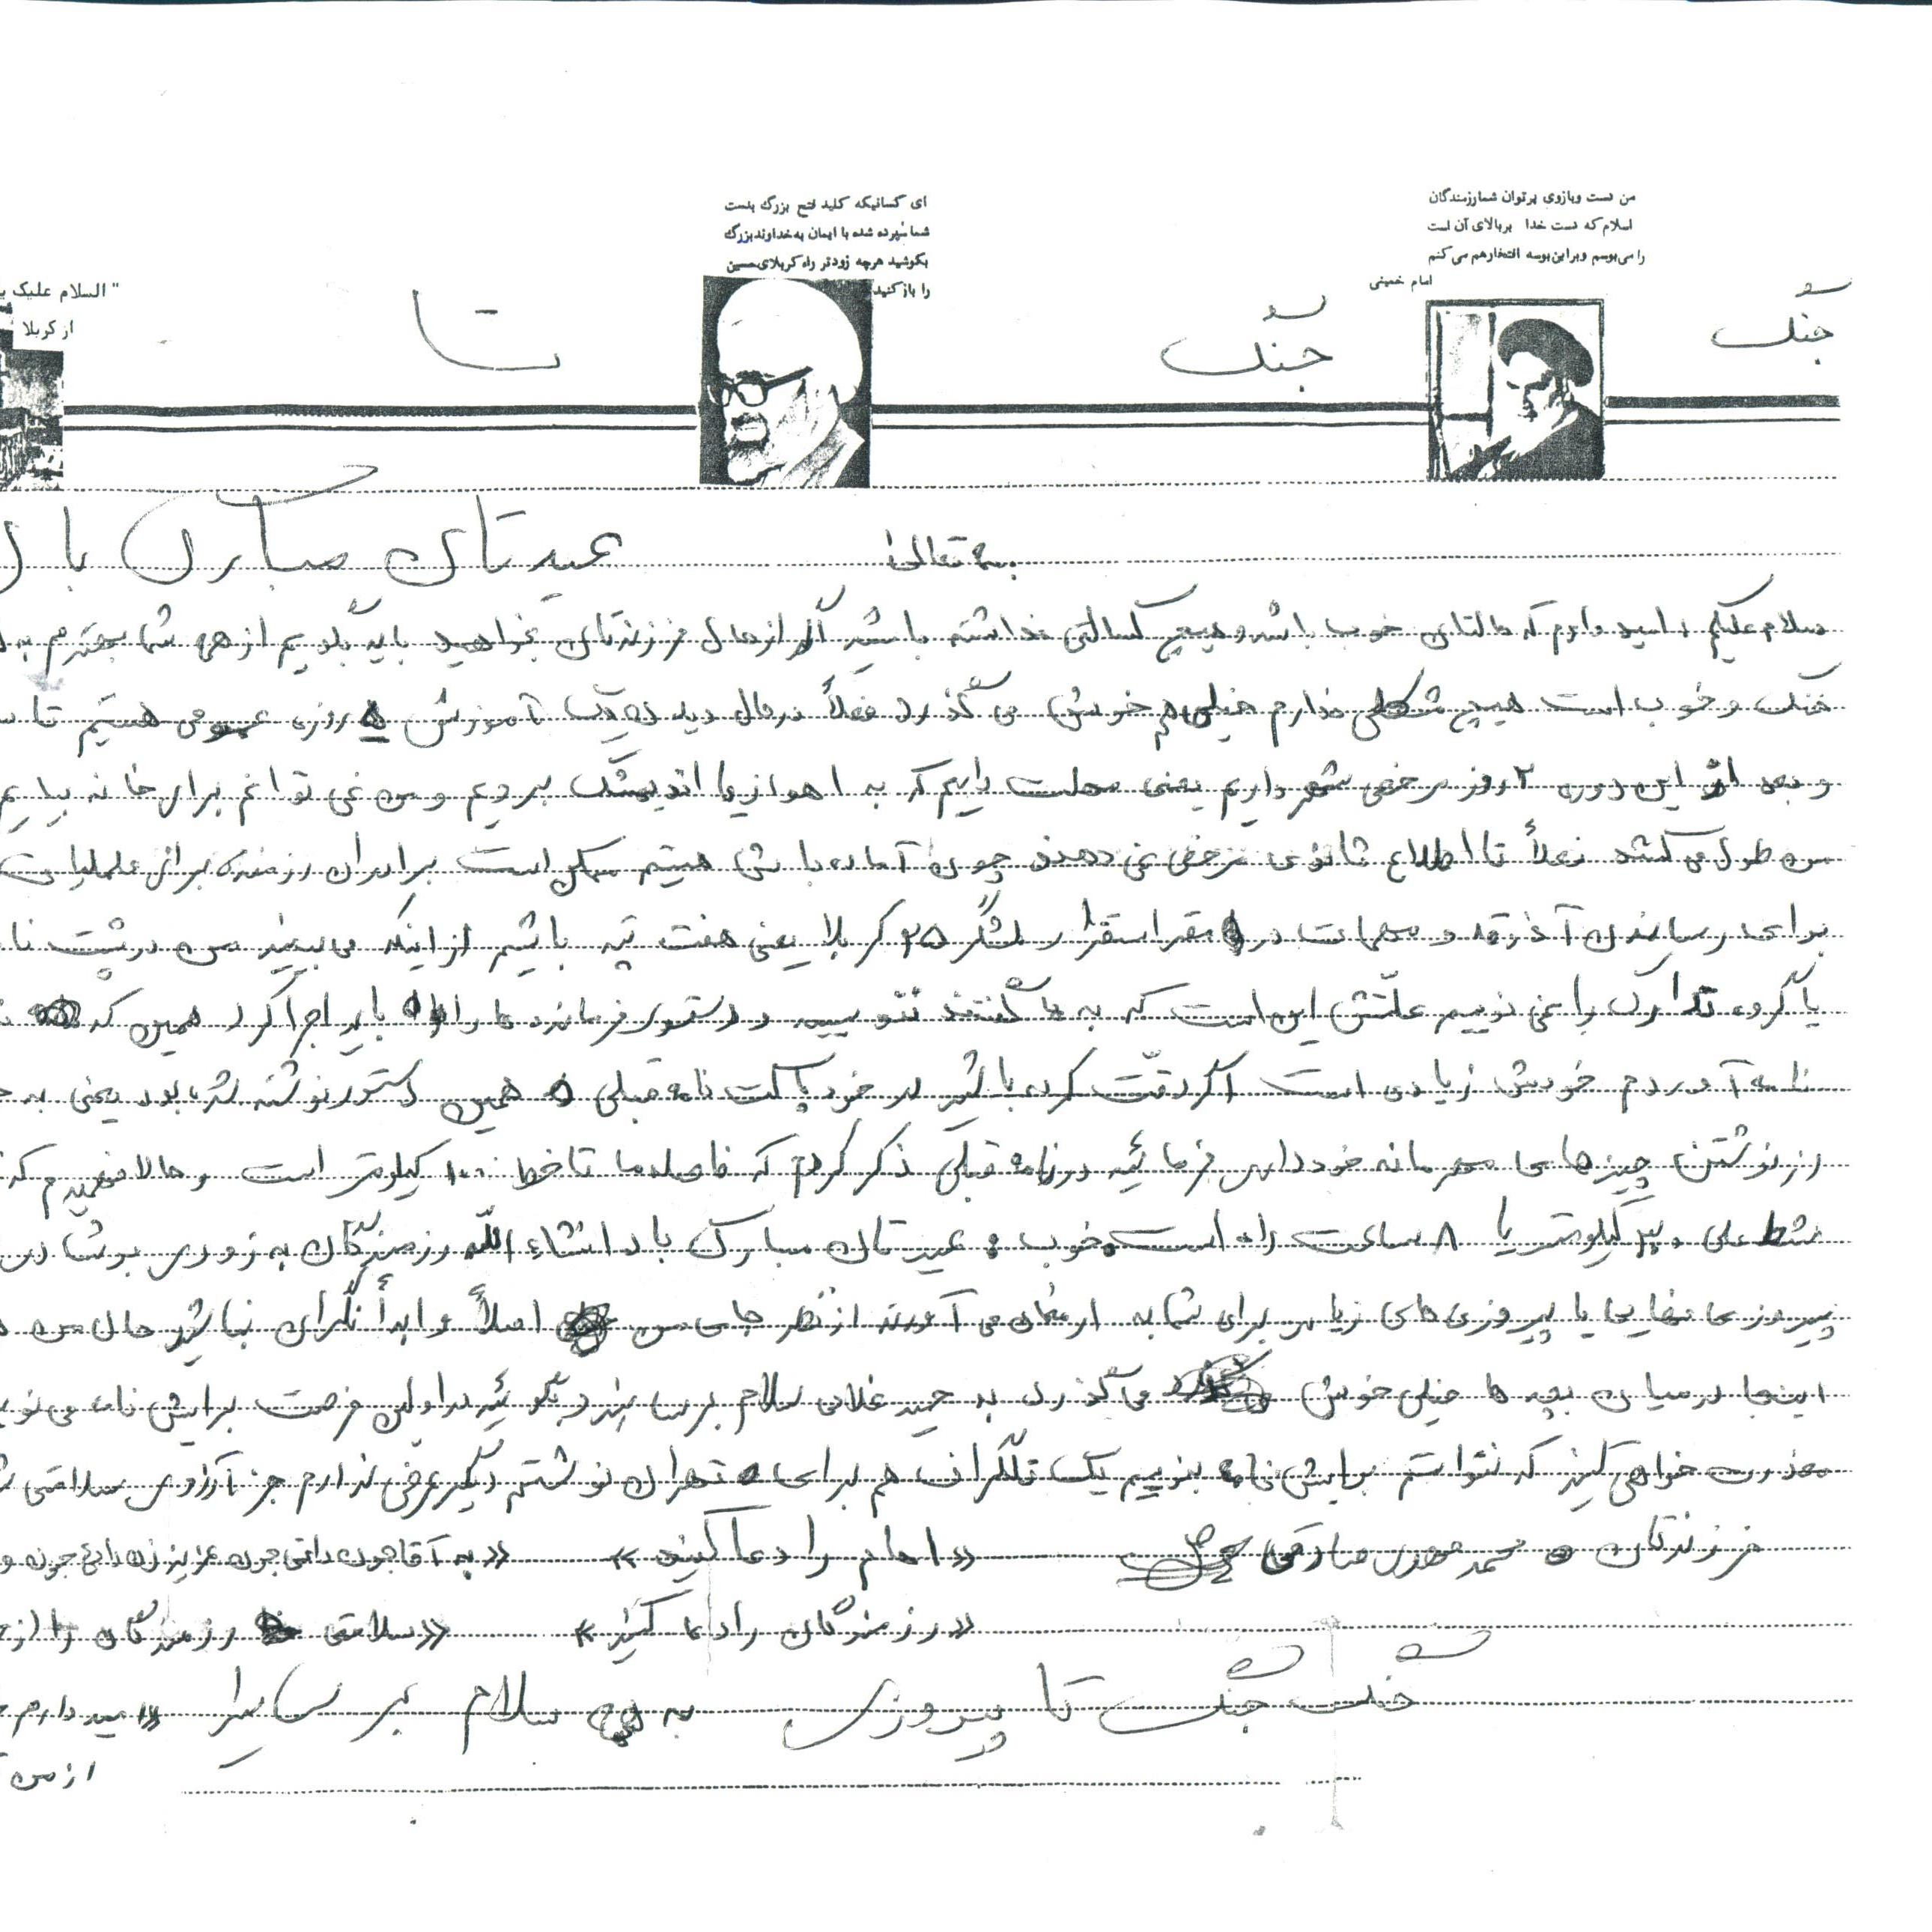 من دست وبازوی پرتوان شمارزمندگان
اسلام که دست خدا بربالای آن است
را می‌بوسم وبراین بوسه افتخارهم می کنم
امام خمینی
ای کسانیکه کلید فتح بزرگ بدست
شما سپرده شده با ایمان به خداوند بزرگ
بکوشید هرچه زودتر راه کربلای حسین
را باز کنید
"السلام علیک
از کربلا
جنگ جنگ تا
بسمه تعالی عیدتان مبارک باد
سلام علیکم امیدوارم که حالتان خوب باشد و هیچ کسالتی نداشته باشید اگر از حال فرزندتان بخواهید باید بگویم از همه شما بهترم
خنک و خوب است هیچ مشکلی ندارم خیلی هم خوش می گذرد فعلاً در حال دیدن آموزش روزه عمومی هستیم تا
و بعد از این دوره ۲ روز مرخصی شهر داریم یعنی مهلت داریم که به اهواز یا اندیمشک برویم و من نمی توانم برای خانه بیایم
من طول می کشد فعلاً تا اطلاع ثانوی مرخصی نمی دهند چون آماده باش هستیم ممکن است برادران رزمنده برای عملیات
برای رساندن آذوقه و مهمات در مقر استقرار لشگر ۲۵ کربلا یعنی هفت تپه باشیم از اینکه می بینید من در پشت
یا گروه تدارک را نمی نویسم علّتش این است که به ما گفتند ننویسید و دستور فرمانده ها را باید اجرا کرد همین که
نامه آوردم خودش زیادی است اگر دقّت کرده باشید در خود پاکت نامه قبلی همین دستور نوشته شده بود یعنی به
از نوشتن چیزهای محرمانه خودداری فرمائید در نامه قبلی ذکر کردم که فاصله ما تا خط ۱۰۰ کیلومتر است و حالا فهمیدم که
شط علی کیلومتر یا ۸ ساعت راه است خوب عیدتان مبارک باد انشاء الله رزمندگان به زودی
پیروزی نهایی یا پیروزی های زیاد برای شما به ارمغان می آورند از نظر جای من اصلاً و ابداً نگران نباشید حال من
اینجا در میان بچه ها خیلی خوش می گذرد به حمید غلامی سلام برسانید بگوئید در اولین فرصت برایش نامه می
معذرت خواهی کنید که نتوانستم برایش نامه بنویسم یک تلگراف هم برای تهران نوشتم دیگر عرضی ندارم جز آرزوی سلامتی
فرزندتان محمد مهدی صادقی «امام را دعا کنید» «به آقاجون دائی جون عزیز زن دائی جون و
«رزمندگان را دعا کنید» «سلامتی رزمندگان را از
جنگ جنگ تا پیروزی به سلام برسانید «امیدوارم
از من